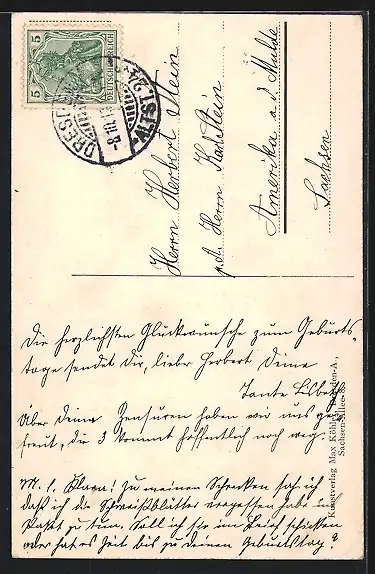 5 5
DEUTSCHES REICH
DRESDEN-ALTST. 24
Herrn Herbert Stein
p. A. Herrn Karl Stein
Amerika a. d. Mulde
Sachsen
Die herzlichsten Glückwünsche zum Geburts-
tage sendet Dir, lieber Herbert Deine
Tante Lisbeth
Über Deine Zensuren haben wir uns ge-
freut, die 3 kommt hoffentlich noch weg.
M. l. Klara! Zu meinem Schrecken sah ich
daß ich die Schweißblätter vergessen habe ins
Paket zu tun. Soll ich sie im Brief schicken
oder hat es Zeit bis zu deinem Geburtstag?
Kunstverlag Max Köhler, Dresden-A.,
Sachsen-Allee 8.